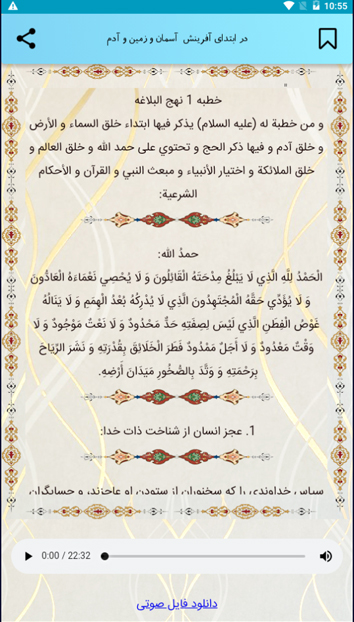 10:55
در ابتدای آفرینش آسمان و زمین و آدم
خطبه 1 نهج البلاغه
و من خطبة له (علیه السلام) یذکر فیها ابتداء خلق السماء و الأرض
و خلق آدم و فیها ذکر الحج و تحتوي علی حمد الله و خلق العالم و
خلق الملائکة و اختیار الأنبیاء و مبعث النبي و القرآن و الأحکام
الشرعیة:
حمدُ الله:
الْحَمْدُ لِلَّهِ الَّذِي لَا يَبْلُغُ مِدْحَتَهُ الْقَائِلُونَ وَ لَا يُحْصِي نَعْمَاءَهُ الْعَادُّونَ
وَ لَا يُؤَدِّي حَقَّهُ الْمُجْتَهِدُونَ الَّذِي لَا يُدْرِكُهُ بُعْدُ الْهِمَمِ وَ لَا يَنَالُهُ
غَوْصُ الْفِطَنِ الَّذِي لَيْسَ لِصِفَتِهِ حَدٌّ مَحْدُودٌ وَ لَا نَعْتٌ مَوْجُودٌ وَ لَا
وَقْتٌ مَعْدُودٌ وَ لَا أَجَلٌ مَمْدُودٌ فَطَرَ الْخَلَائِقَ بِقُدْرَتِهِ وَ نَشَرَ الرِّيَاحَ
بِرَحْمَتِهِ وَ وَتَّدَ بِالصُّخُورِ مَيَدَانَ أَرْضِهِ.
1. عجز انسان از شناخت ذات خدا:
سپاس خداوندی را که سخنوران از ستودن او عاجزند، و حسابگران
0:00 / 22:32
دانلود فایل صوتی